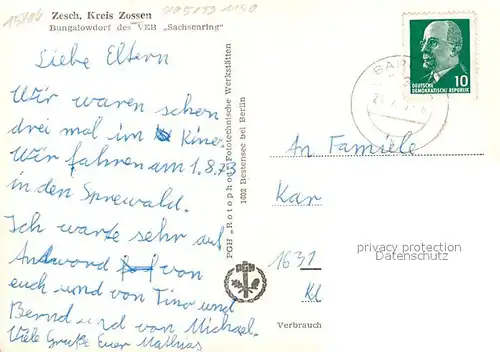 15184
495193 1140
Zesch, Kreis Zossen
Bungalowdorf des VEB „Sachsenring"
Liebe Eltern
Wir waren schon
drei mal im Kiner.
Wir fahren am 1.8.73
in den Sprewald.
Ich warte sehr auf
Andword von
euch und von Tino und
Bernd und von Michael.
Viele Gruße Euer Mathias
PGH „Rotophot" Fototechnische Werkstätten
1602 Bestensee bei Berlin
PGH
DEUTSCHE
DEMOKRATISCHE REPUBLIK
10
BAR
An Famiele
Kar
privacy protection
Datenschutz
1631
Kl
Verbrauch